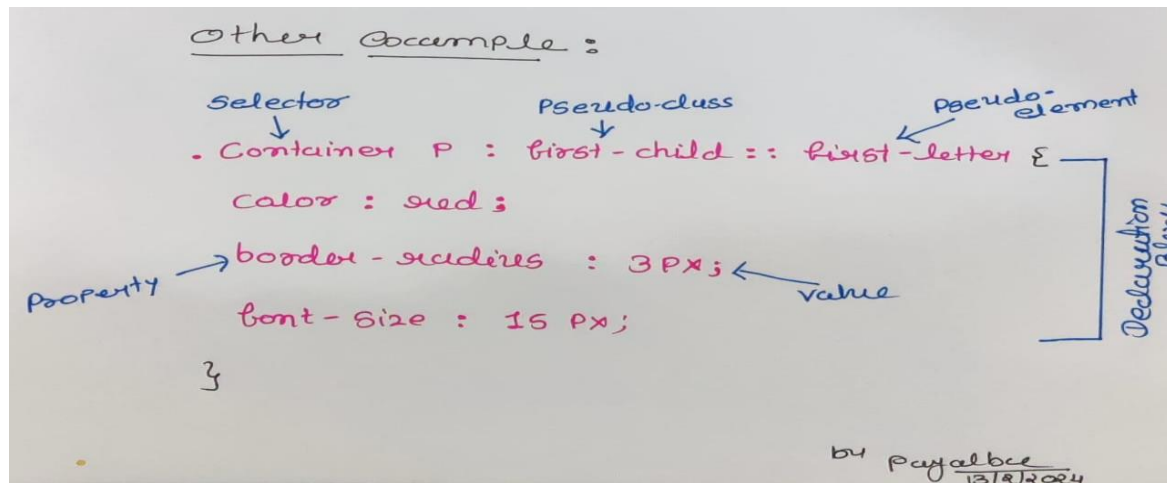 Other Example :
Selector Pseudo-class Pseudo-element
. Container P : first-child :: first-letter {
color : red ;
border-radius : 3px ;
Property
value
font-size : 15 px ;
}
Declaration
by payalbce
13/2/2024